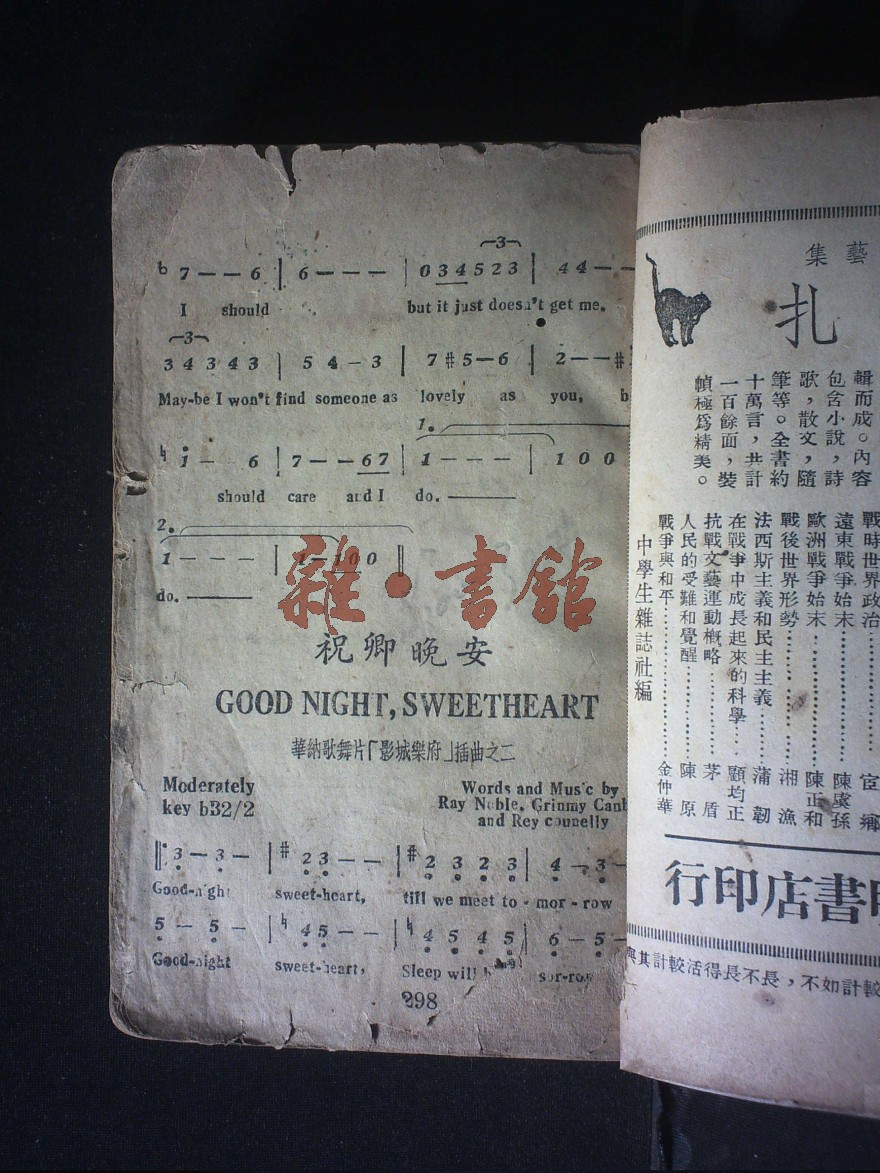 b 7 — — 6 | 6 — — — | 0 3 4 5 2 3 | 4 4 — —
I should but it just doesn't get me.
3 4 3 4 3 | 5 4 — 3 | 7 #5 — 6 | 2 — — #
May-be I won't find someone as lovely as you, b
1.
♮ 1 — 6 | 7 — — 6 7 | 1 — — — | 1 0 0
should care and I do.
2.
1 — — — | 1 - 1 0 0 ‖
do.
雜·書館
祝卿晚安
GOOD NIGHT, SWEETHEART
華納歌舞片「影城樂府」插曲之二
Moderately
key b32/2
Words and Music by
Ray Noble, Grimmy Camb
and Rey counelly
‖: 3 — 3 — | #2 3 — — | #2 3 2 3 | 4 — 3 —
Good-night sweet-heart, till we meet to - mor - row
5 — 5 — | ♮4 5 — — | ♮4 5 4 5 | 6 — 5 —
Good-night sweet-heart, Sleep will sor-row
298
藝
集
扎
輯而成。內容
包含小說，詩
歌，散文，隨
筆等。全書約
十萬言，共計
一百餘面，裝
幀極爲精美。
戰時世界政治 宦鄉
遠東戰爭始末 陳虞孫
歐洲戰爭始末 陳正和
戰後世界形勢 湘漁
法西斯主義和民主主義 蒲韌
在戰爭中成長起來的科學 顧均正
抗戰文藝運動概略 茅盾
人民的受難和覺醒 陳原
戰爭與和平 金仲華
中學生雜誌社編
行印店書明
與其計較活得長不長，不如計較